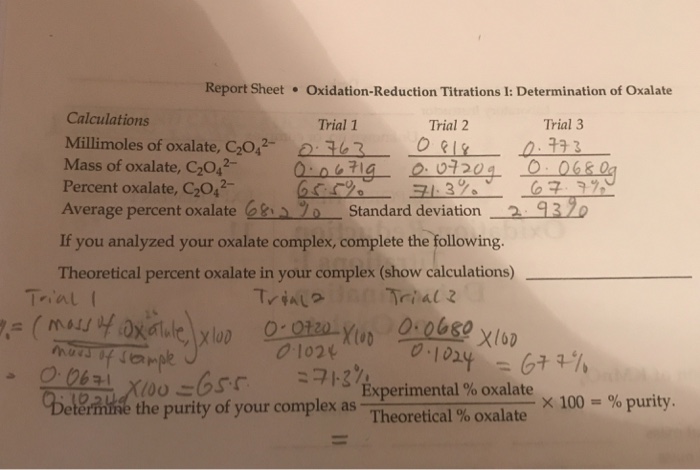 Report Sheet • Oxidation-Reduction Titrations I: Determination of Oxalate
Calculations Trial 1 Trial 2 Trial 3
Millimoles of oxalate, C₂O₄²⁻ 0.763 0 818 0.773
Mass of oxalate, C₂O₄²⁻ 0.0671g 0.0720g 0.0680g
Percent oxalate, C₂O₄²⁻ 65.5% 71.3% 67.7%
Average percent oxalate 68.2% Standard deviation 2.93%
If you analyzed your oxalate complex, complete the following.
Theoretical percent oxalate in your complex (show calculations)
Trial 1 Trial 2 Trial 3
%= (mass of oxalate/mass of sample) x100 0.0720/0.1024 x100 0.0680/0.1024 x100
0.0671/0.1024 x100 = 65.5 =71.3% = 677%
Determine the purity of your complex as Experimental % oxalate/Theoretical % oxalate × 100 = % purity.
=